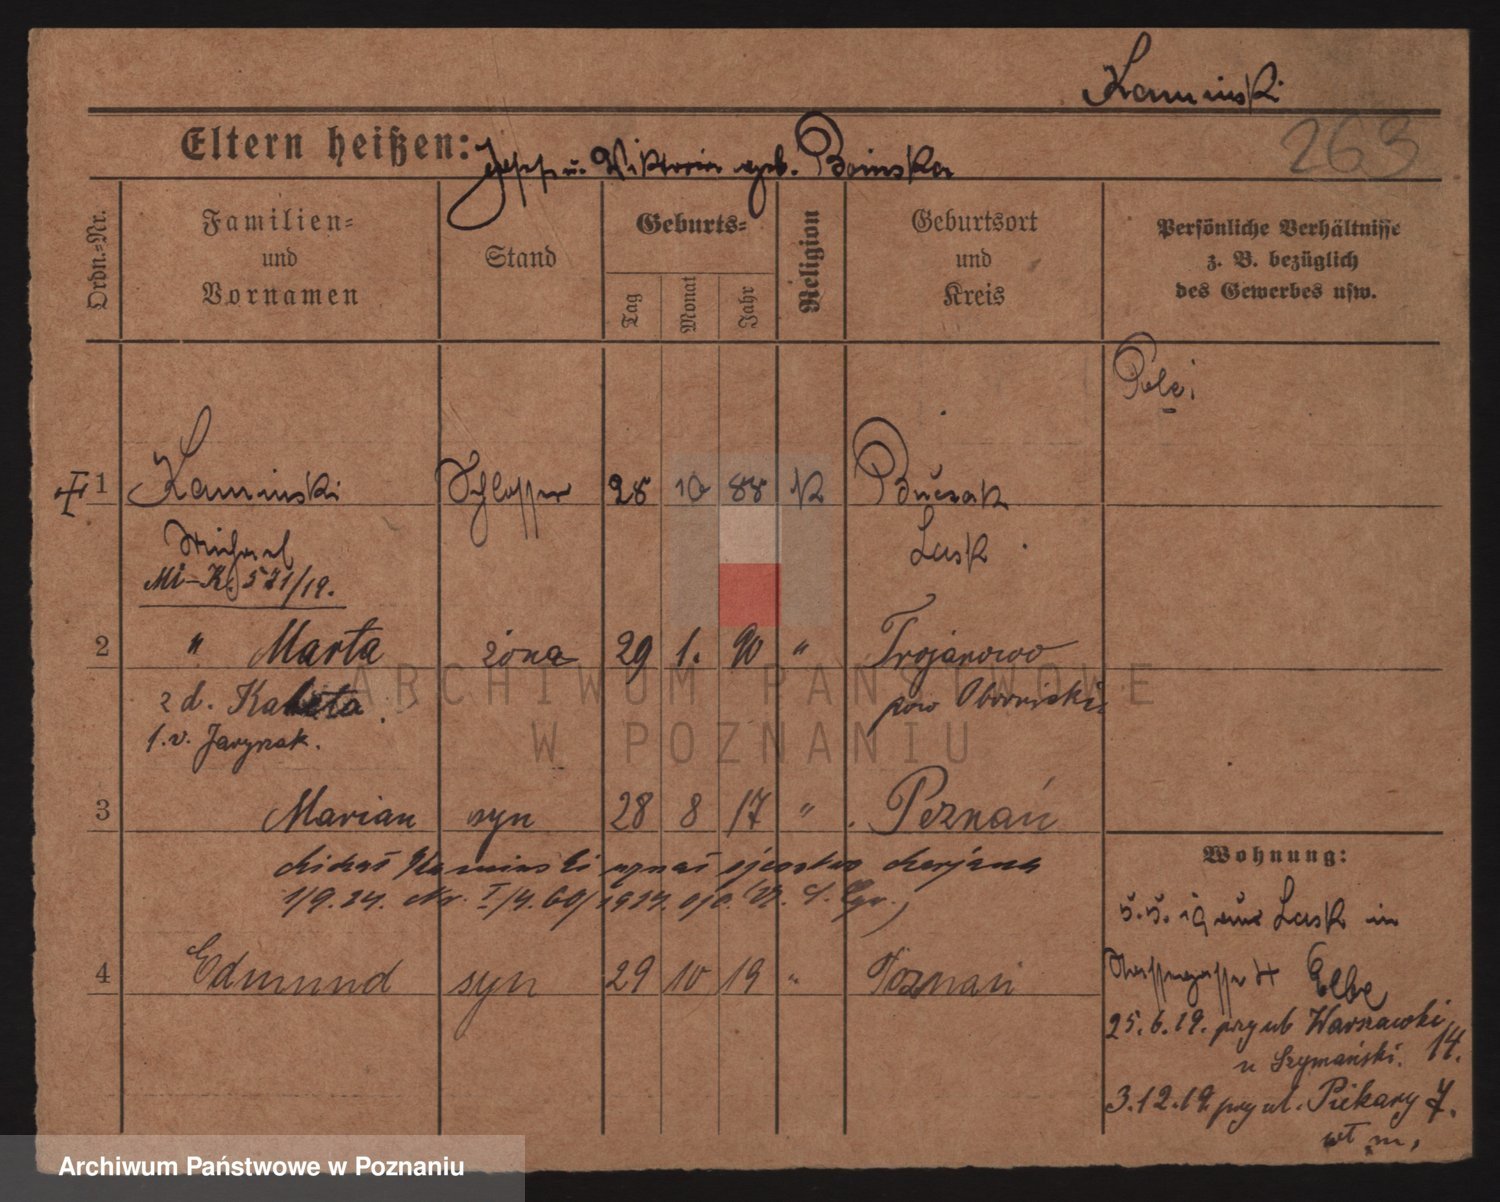 Kaminski
263
Eltern heißen: Josef u. Wiktoria geb. Boinska
Ordn.-Nr.
Familien- und Vornamen
Stand
Geburts-
Tag
Monat
Jahr
Religion
Geburtsort und Kreis
Persönliche Verhältnisse z. B. bezüglich des Gewerbes usw.
Pole
1 Kaminski Schlosser 28 10 88 K Buczek
Michael Lask
Mi-K. 571/19.
2 " Marta żona 29 1. 90 " Trojanowo
z d. Kaleta pow Obornicki
1.v.
3 Marian syn 28 8 17 " Poznań
Michał Kaminski uznał ojcostwo Marjana
1/9.24. Nr. I/4.60/1924
4 Edmund syn 29 10 19 " Poznań
Wohnung:
5.5.19 aus Lask in
Elbe
25.6.19. przy ul Warszawski 14.
u Szymański.
3.12.19 przy ul. Piekary 7.
wł m,
ARCHIWUM PAŃSTWOWE
W POZNANIU
Archiwum Państwowe w Poznaniu